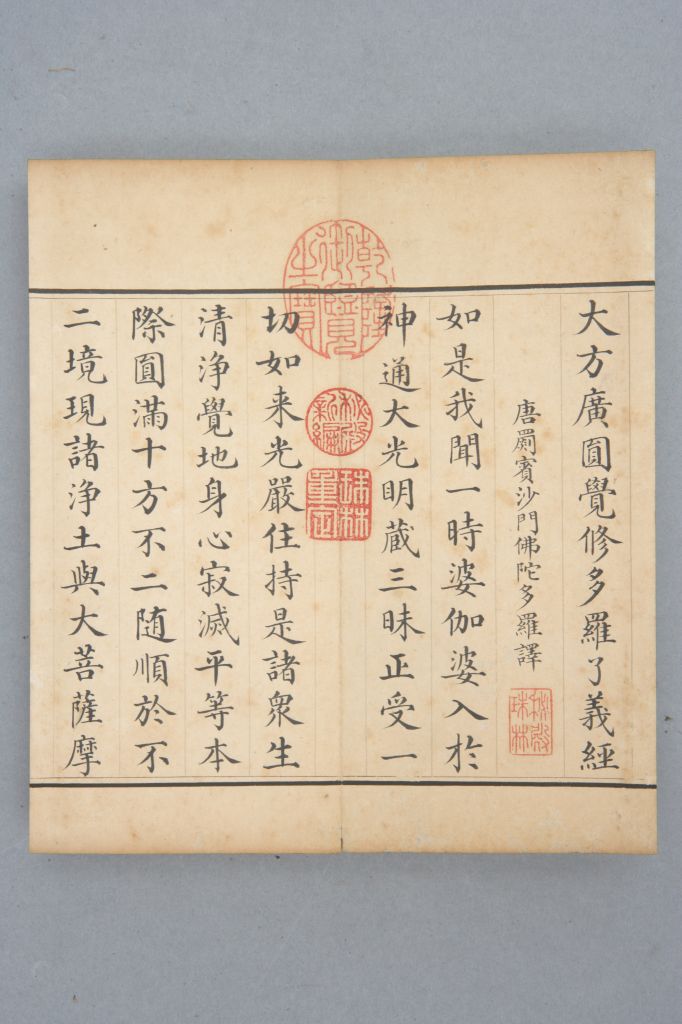 大方廣圓覺修多羅了義經
唐罽賓沙門佛陀多羅譯
秘殿珠林
如是我聞一時婆伽婆入於
神通大光明蔵三昧正受一
乾隆御覽之寶
秘殿新編
珠林重定
切如来光嚴住持是諸衆生
清浄覺地身心寂滅平等本
際圓滿十方不二随順於不
二境現諸浄土與大菩薩摩